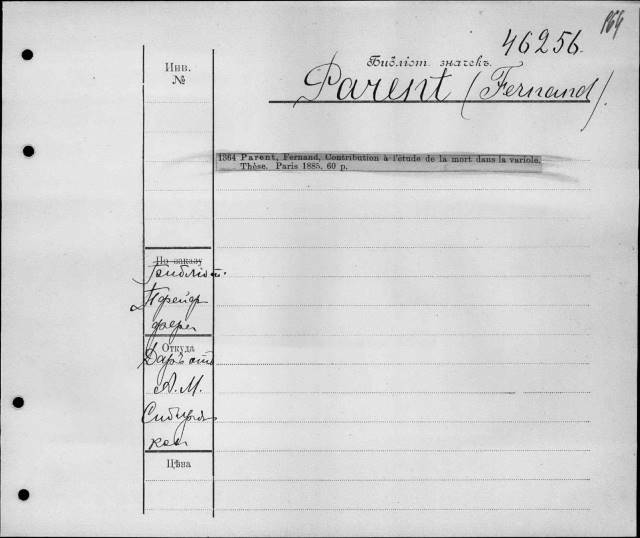 166
46256.
Библіот. значекъ.
Parent (Fernand).
Инв.
№
1364 Parent, Fernand, Contribution à l'étude de la mort dans la variole.
Thèse. Paris 1885. 60 p.
По заказу
Библіот.
Пфейф
фера
Откуда
Даръ отъ
А. М.
Сибиряк
Цѣна